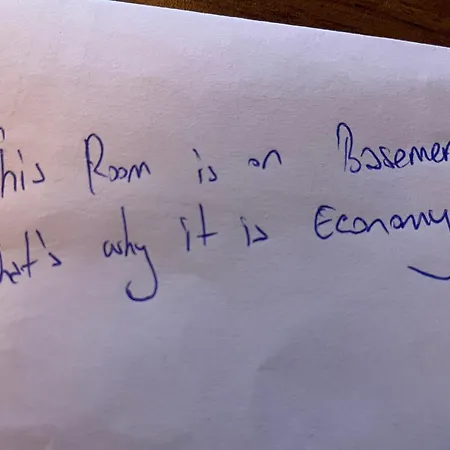 This Room is on Basemen
that's why it is Economy